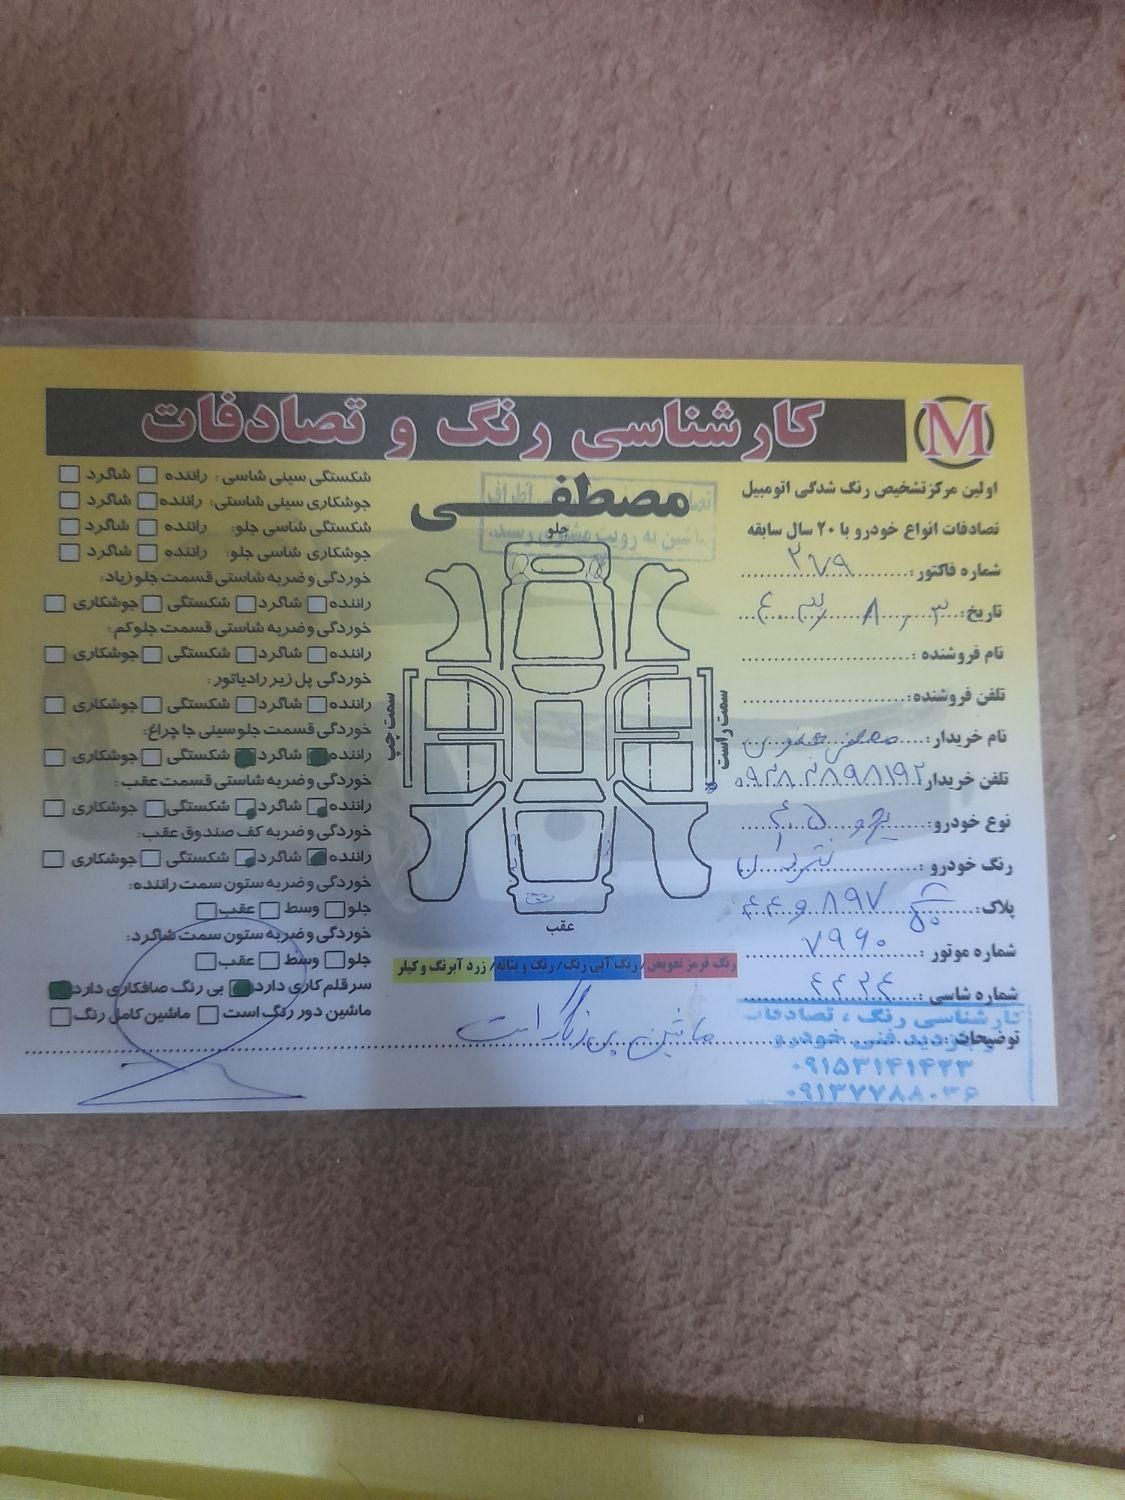 کارشناسی رنگ و تصادفات
M
اولین مرکز تشخیص رنگ شدگی اتومبیل
تصادفات انواع خودرو با ۲۰ سال سابقه
شماره فاکتور: ۲۷۹
تاریخ:
نام فروشنده:
تلفن فروشنده:
نام خریدار:
تلفن خریدار
نوع خودرو: پژو ۴۰۵
رنگ خودرو:
پلاک:
شماره موتور: ۷۹۶۰
شماره شاسی: ۴۴۲۴
توضیحات: ماشین بی رنگ است
کارشناسی رنگ ، تصادفات
و بازدید فنی خودرو
۰۹۱۵۳۱۴۱۴۲۳
۰۹۱۳۷۷۸۸۰۳۶
مصطفی
ماشین به رویت مشتری رسید.
جلو
سمت چپ
سمت راست
عقب
رنگ قرمز تعویض / رنگ آبی رنگ / رنگ و بتانه / زرد آبرنگ و کیلر
شکستگی سینی شاسی: راننده شاگرد
جوشکاری سینی شاستی: راننده شاگرد
شکستگی شاسی جلو: راننده شاگرد
جوشکاری شاسی جلو: راننده شاگرد
خوردگی و ضربه شاستی قسمت جلو زیاد:
راننده شاگرد شکستگی جوشکاری
خوردگی و ضربه شاستی قسمت جلو کم:
راننده شاگرد شکستگی جوشکاری
خوردگی پل زیر رادیاتور:
راننده شاگرد شکستگی جوشکاری
خوردگی قسمت جلو سینی جا چراغ:
راننده شاگرد شکستگی جوشکاری
خوردگی و ضربه شاستی قسمت عقب:
راننده شاگرد شکستگی جوشکاری
خوردگی و ضربه کف صندوق عقب:
راننده شاگرد شکستگی جوشکاری
خوردگی و ضربه ستون سمت راننده:
جلو وسط عقب
خوردگی و ضربه ستون سمت شاگرد:
جلو وسط عقب
سر قلم کاری دارد بی رنگ صافکاری دارد
ماشین دور رنگ است ماشین کامل رنگ